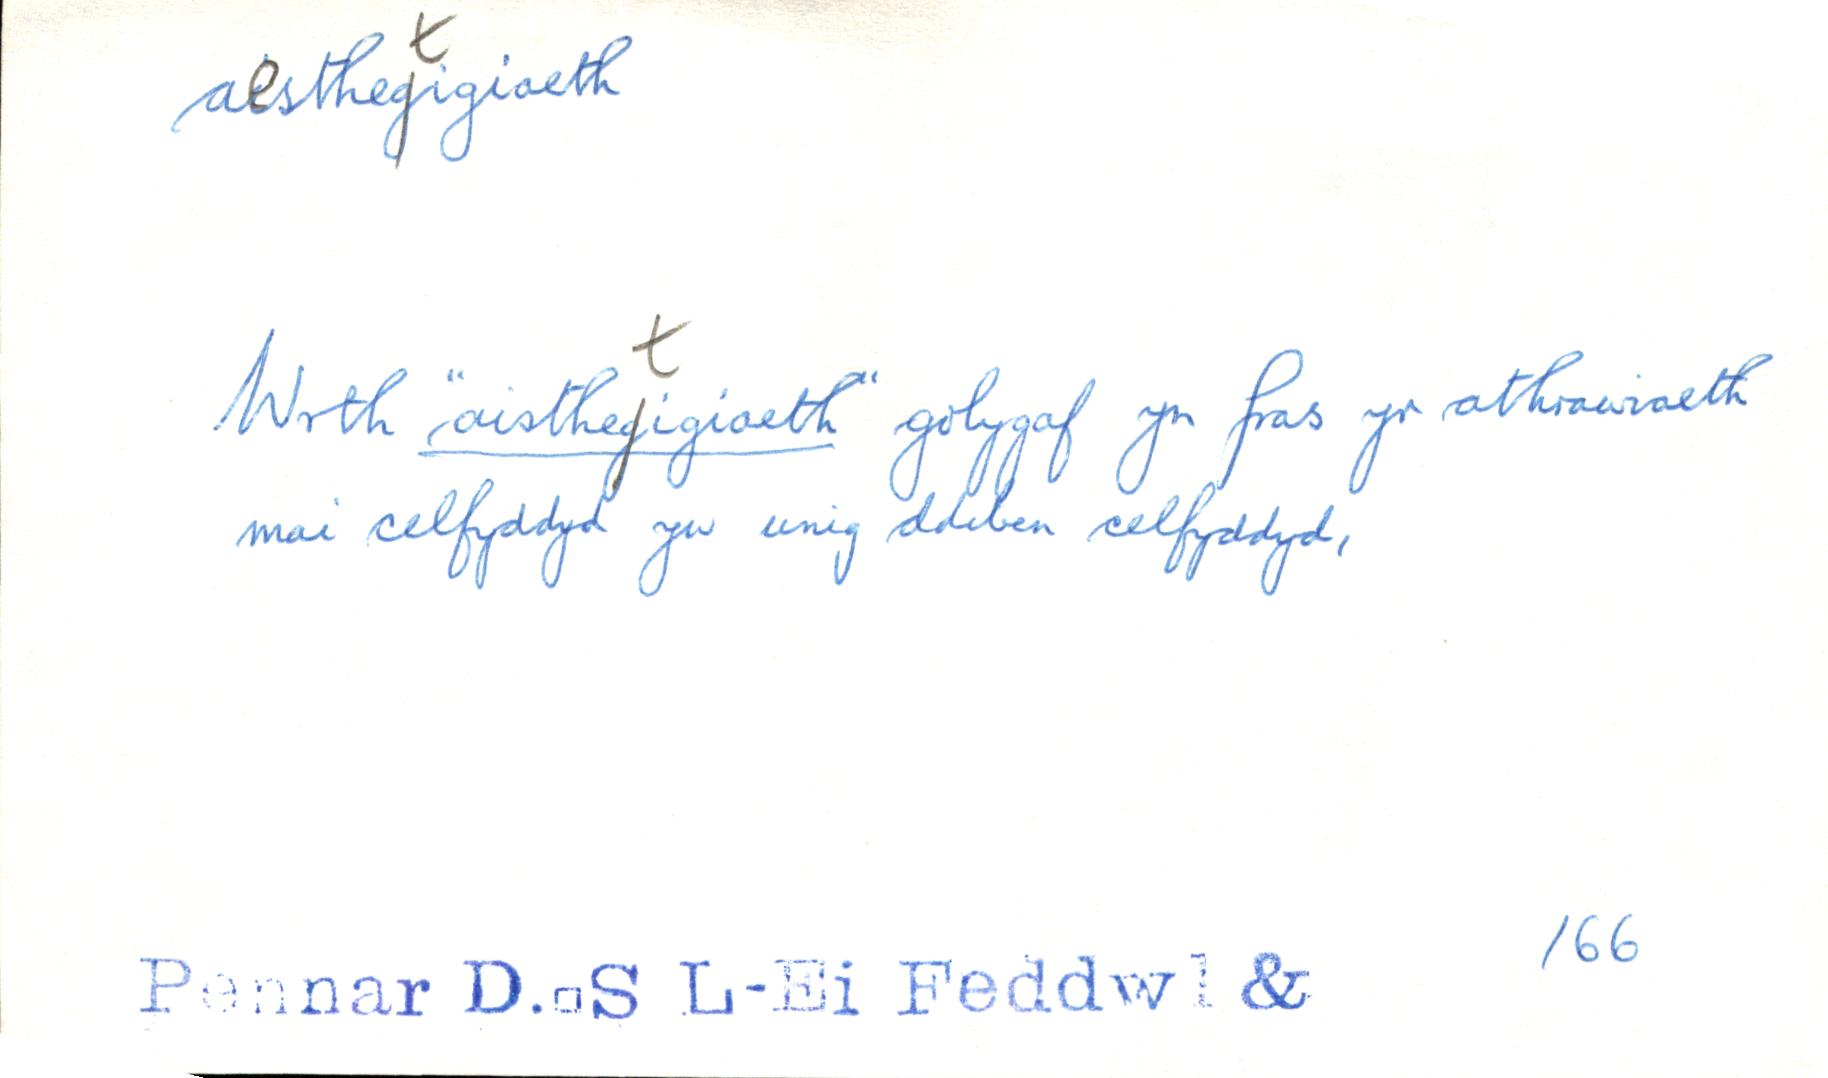 aesthetigiaeth
Wrth "aisthetigiaeth" golygaf yn fras yr athrawiaeth
mai celfyddyd yw unig ddiben celfyddyd,
166
Pennar D.□S L-Ei Feddwl &